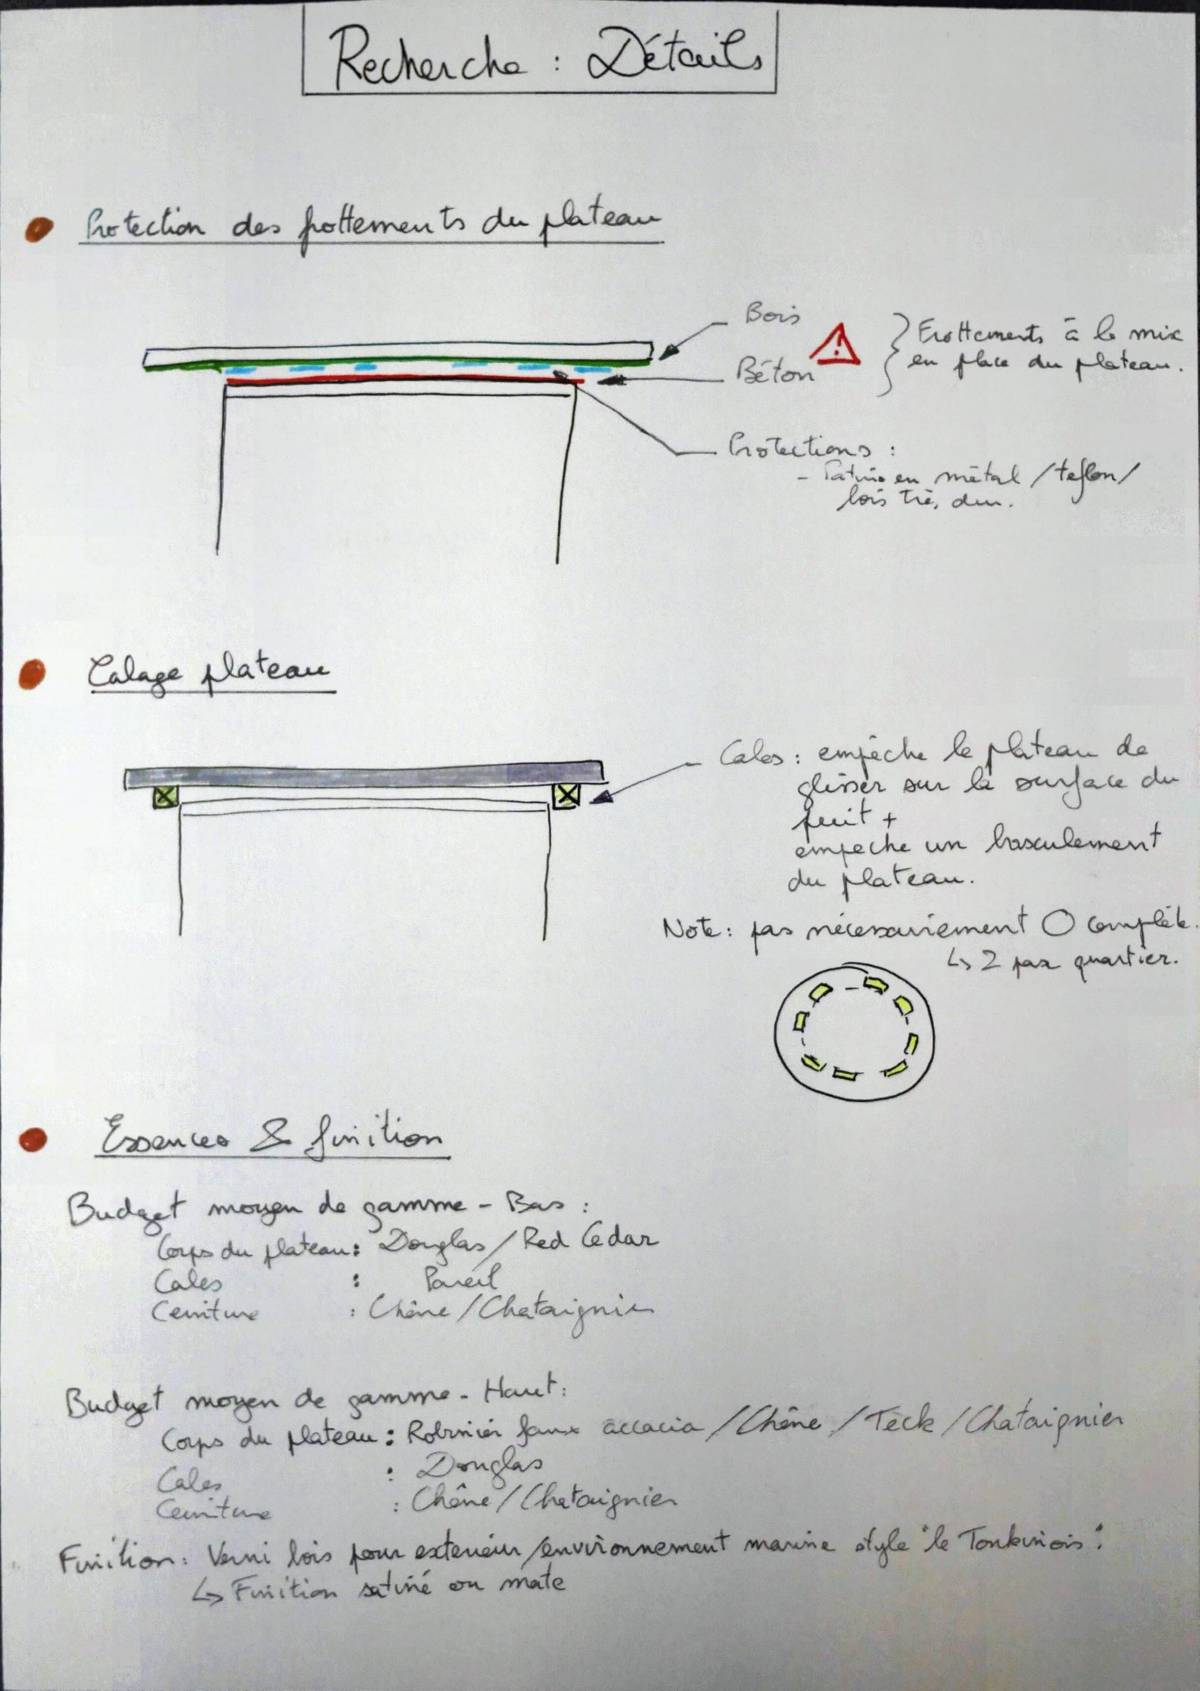 Recherche : Détails
Protection des frottements du plateau
Bois
Béton
Frottements à la mise
en place du plateau.
Protections :
- Patins en métal / teflon /
bois très dur.
Calage plateau
Cales : empêche le plateau de
glisser sur la surface du
puit +
empeche un basculement
du plateau.
Note : pas nécessairement O complète.
↳ 2 par quartier.
Essences & finition
Budget moyen de gamme - Bas :
Corps du plateau : Douglas / Red Cedar
Cales : Pareil
Ceinture : Chêne / Chataignier
Budget moyen de gamme - Haut :
Corps du plateau : Robinier faux accacia / Chêne / Teck / Chataignier
Cales : Douglas
Ceinture : Chêne / Chataignier
Finition : Verni bois pour exterieur / environnement marine style "le Tonkinois".
↳ Finition satiné ou mate